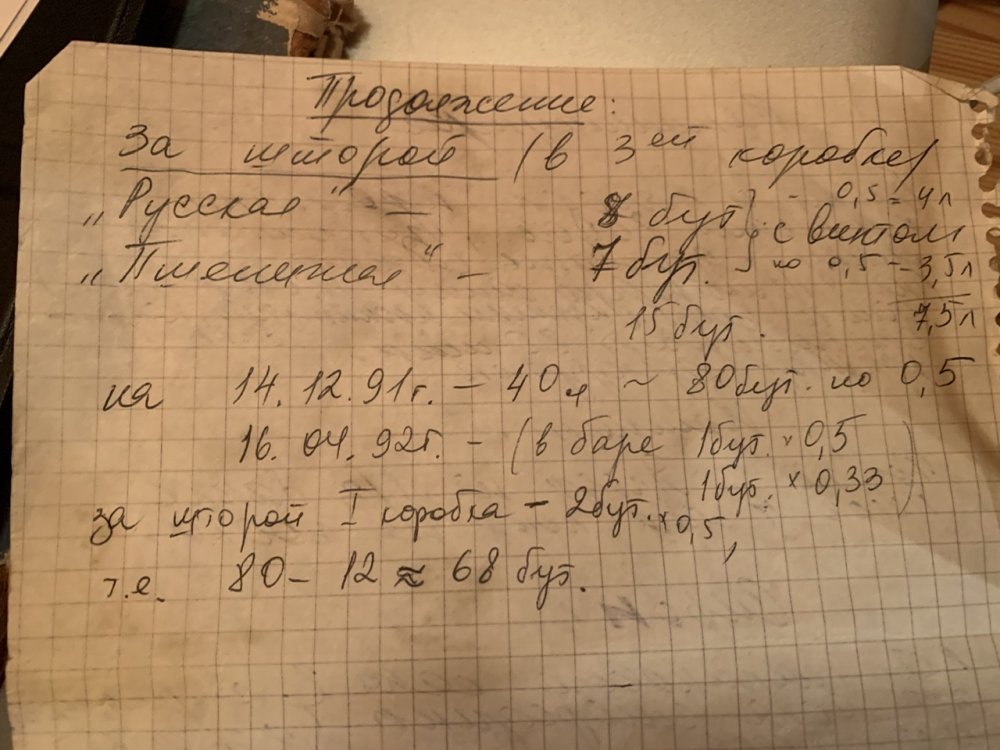 Продолжение:
За шторой (в 3ей коробке)
„Русская" – 8 бут - 0,5 = 4л
с винтом
„Пшеничная" – 7 бут. по 0,5 – 3,5л
15 бут. 7,5л
на 14.12.91г. – 40л ~ 80бут. по 0,5
16.04.92г. – (в баре 1бут. × 0,5
1бут. × 0,33)
за шторой I коробка – 2бут. × 0,5,
т.е. 80 – 12 ≈ 68 бут.